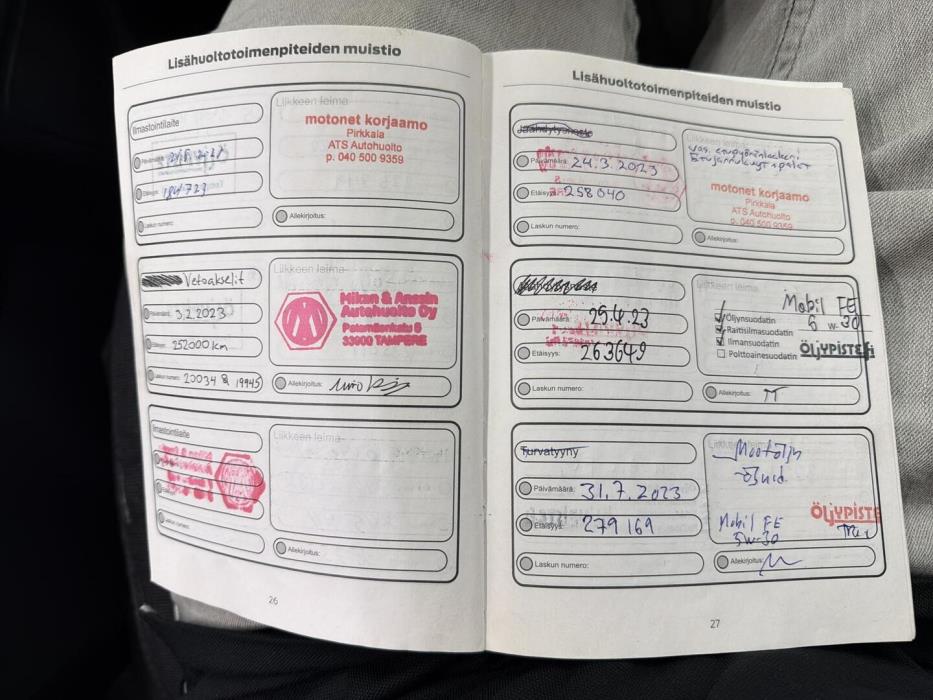 Lisähuoltotoimenpiteiden muistio
Ilmastointilaite
Päivämäärä:
Etäisyys: 184723
Laskun numero:
Liikkeen leima
motonet korjaamo
Pirkkala
ATS Autohuolto
p. 040 500 9359
Allekirjoitus:
Vetoakselit
Päivämäärä: 3.2.2023
Etäisyys: 252000 km
Laskun numero: 20034 & 19945
Liikkeen leima
Mikan & Anssin
Autohuolto Oy
33900 TAMPERE
Allekirjoitus:
Ilmastointilaite
Laskun numero:
Liikkeen leima
Allekirjoitus:
26
Lisähuoltotoimenpiteiden muistio
Päivämäärä: 24.3.2023
Etäisyys: 258040
Laskun numero:
Liikkeen leima
vas. etupyöränlaakeri
motonet korjaamo
Pirkkala
ATS Autohuolto
p. 040 500 9359
Allekirjoitus:
Päivämäärä: 25.4.23
Etäisyys: 263649
Laskun numero:
Liikkeen leima
Mobil FE
5w-30
Öljynsuodatin
Raitisilmasuodatin
Ilmansuodatin
Polttoainesuodatin
ÖLJYPISTE.fi
Allekirjoitus: TT
Turvatyyny
Päivämäärä: 31.7.2023
Etäisyys: 279169
Laskun numero:
Liikkeen leima
Mobil FE
5w-30
ÖLJYPISTE
Allekirjoitus:
27